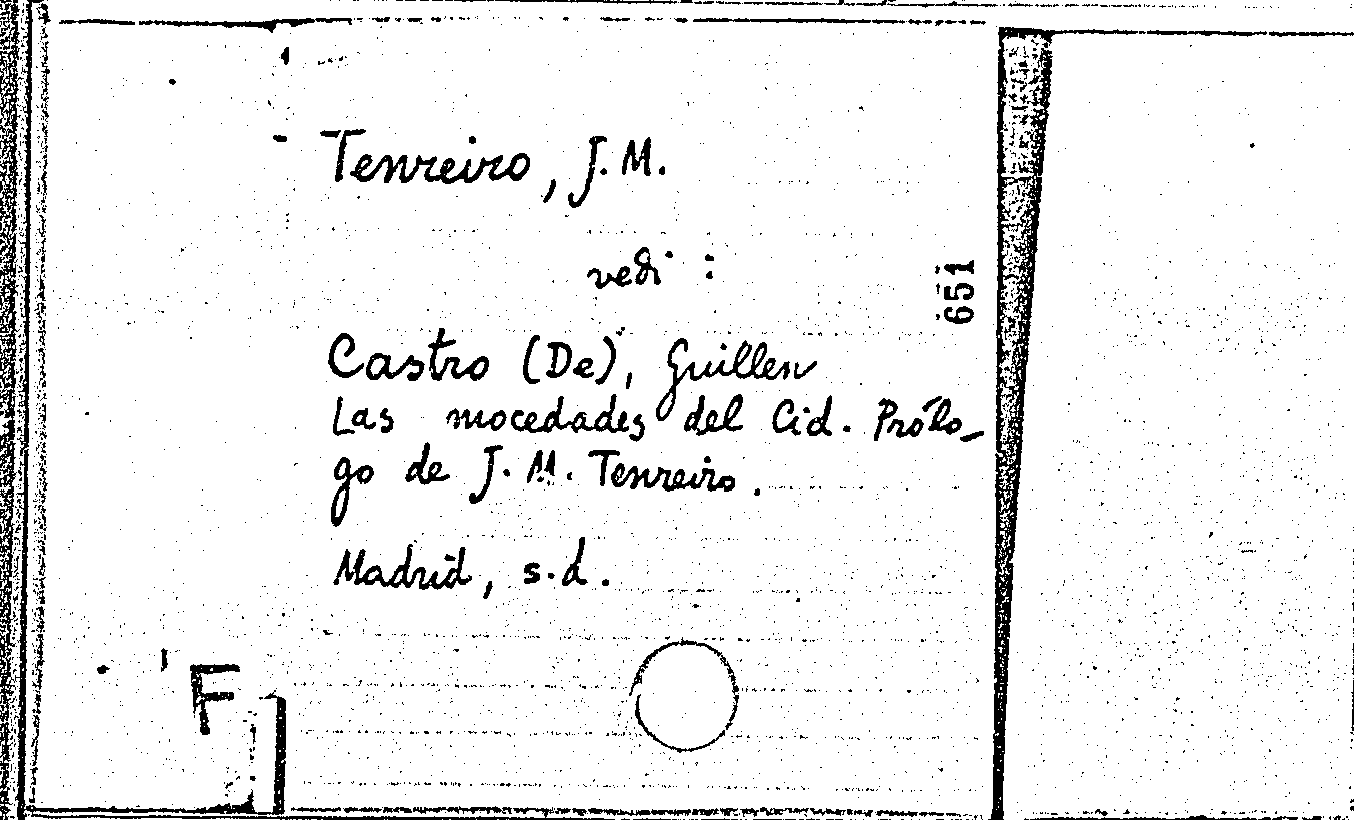 Tenreiro, J. M.
vedi :
651
Castro (De), Guillen
Las mocedades del Cid. Prólo-
go de J. M. Tenreiro.
Madrid, s.d.
F